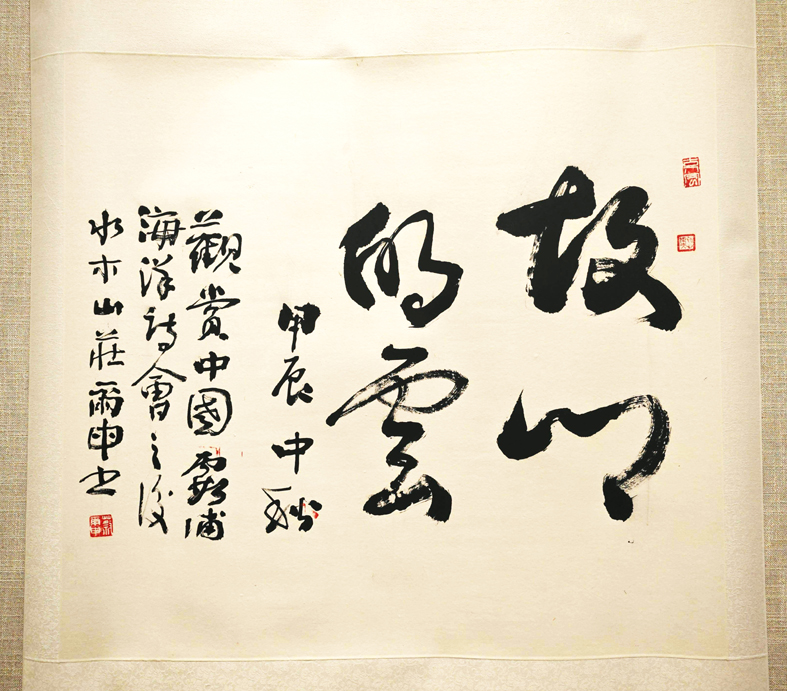 故鄉
的雲
甲辰中秋
觀賞中國霞浦
海洋詩會之後
水木山莊爾申书